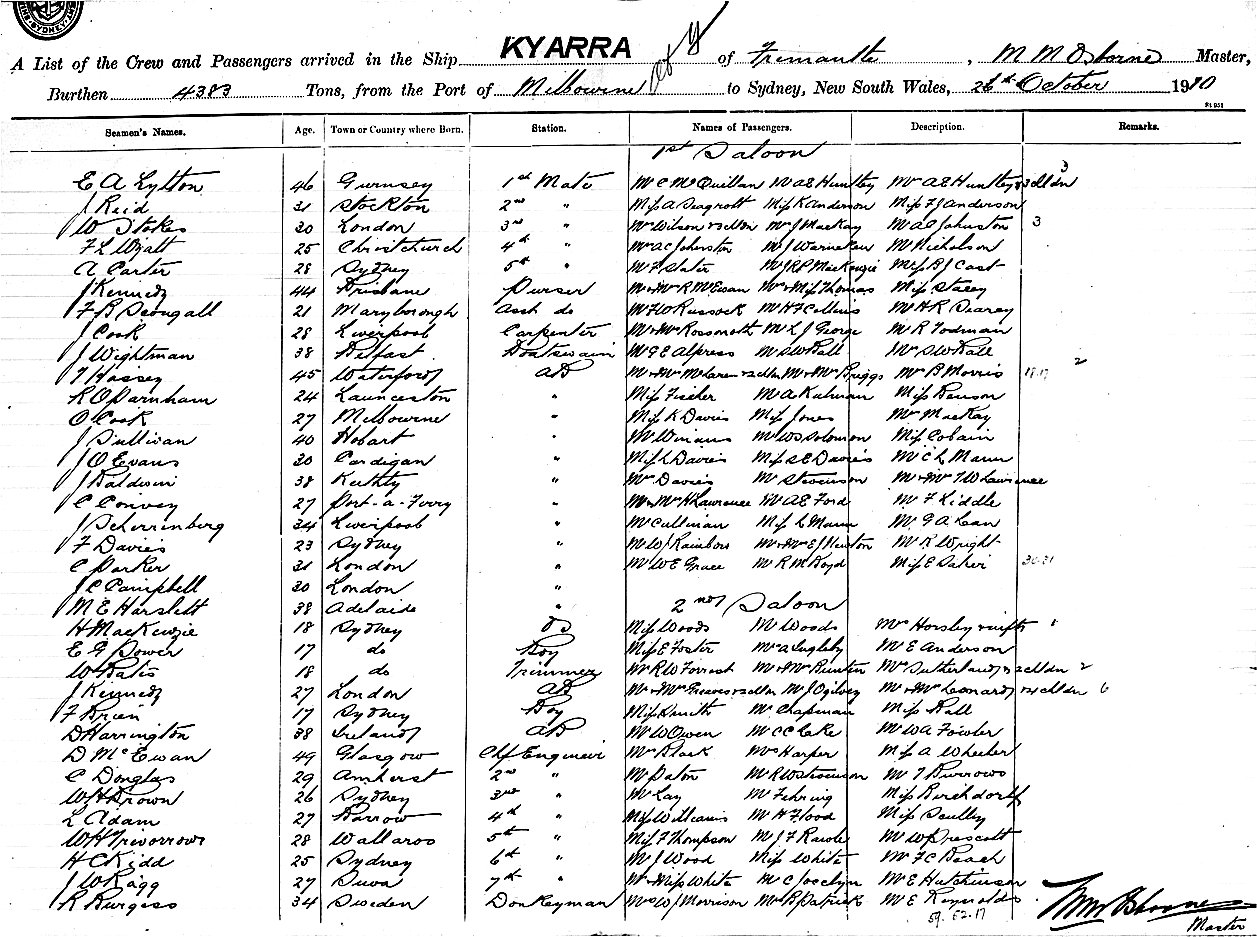 SYDNEY
A List of the Crew and Passengers arrived in the Ship KYARRA of Fremantle, M M Osborne Master,
Burthen 4383 Tons, from the Port of Melbourne to Sydney, New South Wales, 26th October 1910
Seamen's Names. Age. Town or Country where Born. Station. Names of Passengers. Description. Remarks.
1st Saloon
E A Lytton 46 Gurnsey 1st Mate Mr C McQuillan Mr A E Huntley Mrs A E Huntley & 3 chldn 3
J Reid 31 Stockton 2nd " Miss A Seagrott Miss K Anderson Miss F J Anderson
W Stokes 30 London 3rd " Mrs Wilson & 2 chldn Mr J Mackay Mr A C Johnston 3
F L Wyatt 25 Christchurch 4th " Mrs A C Johnston Mr J Warneken Mr Nicholson
A Carter 28 Sydney 5th " Mr F Slater Mr J R P MacKenzie Miss B J Cast
J Kennedy 44 Brisbane Purser Mr & Mrs R McEwan Mr & Miss Thomas Miss Stacey
F B Scougall 21 Maryborough Asst do Mr F W Russock Mr H F Collins Mr H R Searey
J Cook 28 Liverpool Carpenter Mr & Mrs Rossmoth Mr L J George Mr R Todman
J Wightman 38 Belfast Boatswain Mr G E Alpress Mr S W Ball Mrs S W Ball
T Hassey 45 Waterford AB Mr & Mrs McLaren & 2 chldn Mr & Mrs Briggs Mr B Morris 2
R O Parnham 24 Launceston " Miss Fischer Mr A Kulman Miss Benson
O Cook 27 Melbourne " Miss K Davies Miss Jones Mrs MacKay
J Sullivan 40 Hobart " Mr Winians Mr W S Solomon Miss Cobain
J O Evans 30 Cardigan " Miss L Davies Miss S E Davies Mr C L Mann
J Baldwin 38 Keithly " Mrs Davies Mr Stevenson Mr & Mrs T W Lawrence
C Convey 27 Port-a-Ferry " Mr & Mrs H Lawrence Mr A E Ford Mr F Kiddle
J Scherrenberg 34 Liverpool " Mr Cullinan Miss L Mann Mr G A Lean
F Davies 23 Sydney " Mr W J Rainbow Mr & Mrs E J Newton Mr R Wright
C Parker 31 London " Mr W E Grace Mr R M Boyd Miss E Saher 30.31
J C Campbell 30 London "
M E Harslett 38 Adelaide " 2nd Saloon
H MacKenzie 18 Sydney OS Miss Woods Mr Woods Mrs Horsley & inft 1
E G Power 17 do Boy Miss E Foster Mr A Lugleby Mr E Anderson
W Bates 18 do Trimmer Mr R W Forrest Mr & Mrs Bunten Mrs Sutherland & 2 chldn 2
J Kennedy 27 London AB Mr & Mrs Greaves & 2 chldn Mr J Ogilvey Mr & Mrs Leonard & 4 chldn 6
F Brien 17 Sydney Boy Miss Smith Mr Chapman Miss Ball
D Harrington 38 Ireland AB Mr W Owen Mr C C Lake Mr W A Fowler
D McEwan 49 Glasgow Chf Engineer Mrs Black Mrs Harper Miss A Wheeler
C Douglas 29 Amherst 2nd " Mr Paton Mr R W Stevenson Mr T Burrows
W H Brown 26 Sydney 3rd " Mr Lay Mr Fehring Miss Berchdorff
L Adam 27 Barrow 4th " Miss Williams Mr H Flood Miss Sculley
W H Trivorrow 28 Wallaroo 5th " Miss F Thompson Mr J F Rawle Mr W Prescott
H C Kidd 25 Sydney 6th " Mr J Wood Miss White Mr F C Beach
J W Ragg 27 Suva 7th " Mr & Miss White Mr C Joselyn Mr E Hutchinson
R Burgess 34 Sweden Donkeyman Mrs W J Morrison Mr B Patrick Mr E Reynolds
59. 52. 17
M M Osborne
Master